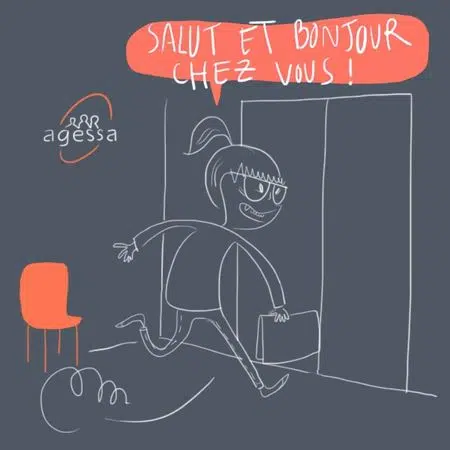 SALUT ET BONJOUR
CHEZ VOUS !
agessa